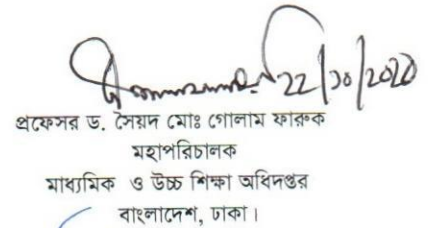 22/10/2020
প্রফেসর ড. সৈয়দ মোঃ গোলাম ফারুক
মহাপরিচালক
মাধ্যমিক ও উচ্চ শিক্ষা অধিদপ্তর
বাংলাদেশ, ঢাকা।